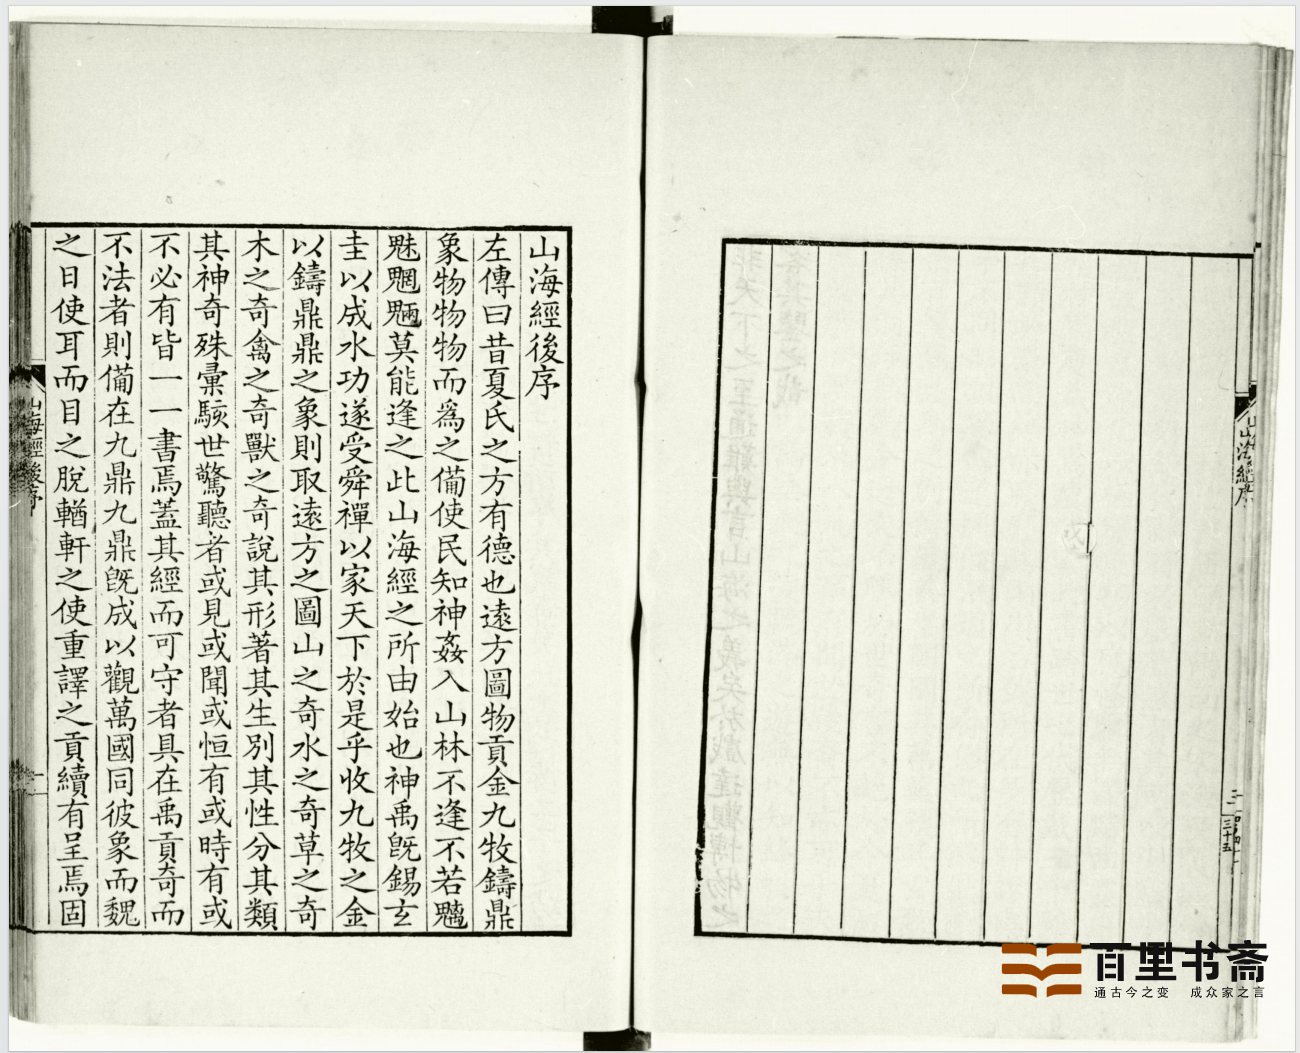 山海經後序
左傳曰昔夏氏之方有德也遠方圖物貢金九牧鑄鼎
象物物物而爲之備使民知神姦入山林不逢不若魑
魅魍魎莫能逢之此山海經之所由始也神禹旣錫玄
圭以成水功遂受舜禪以家天下於是乎收九牧之金
以鑄鼎鼎之象則取遠方之圖山之奇水之奇草之奇
木之奇禽之奇獸之奇說其形著其生別其性分其類
其神奇殊彙駭世驚聽者或見或聞或恒有或時有或
不必有皆一一書焉蓋其經而可守者具在禹貢奇而
不法者則備在九鼎九鼎旣成以觀萬國同彼象而魏
之日使耳而目之脫輶軒之使重譯之貢續有呈焉固
山海經後序
山海經序
百里书斋
通古今之变 成众家之言